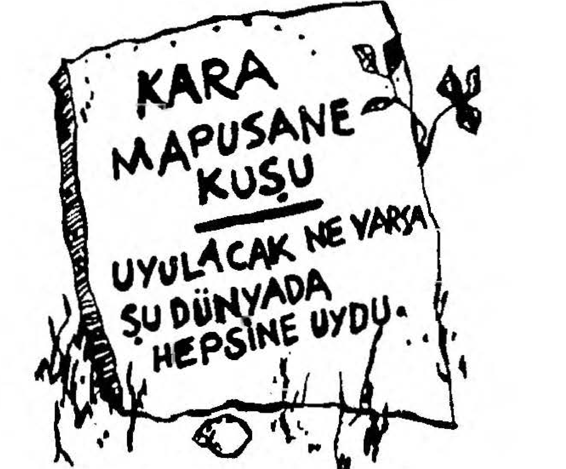 KARA
MAPUSANE
KUŞU
UYULACAK NE VARSA
ŞU DÜNYADA
HEPSİNE UYDU.